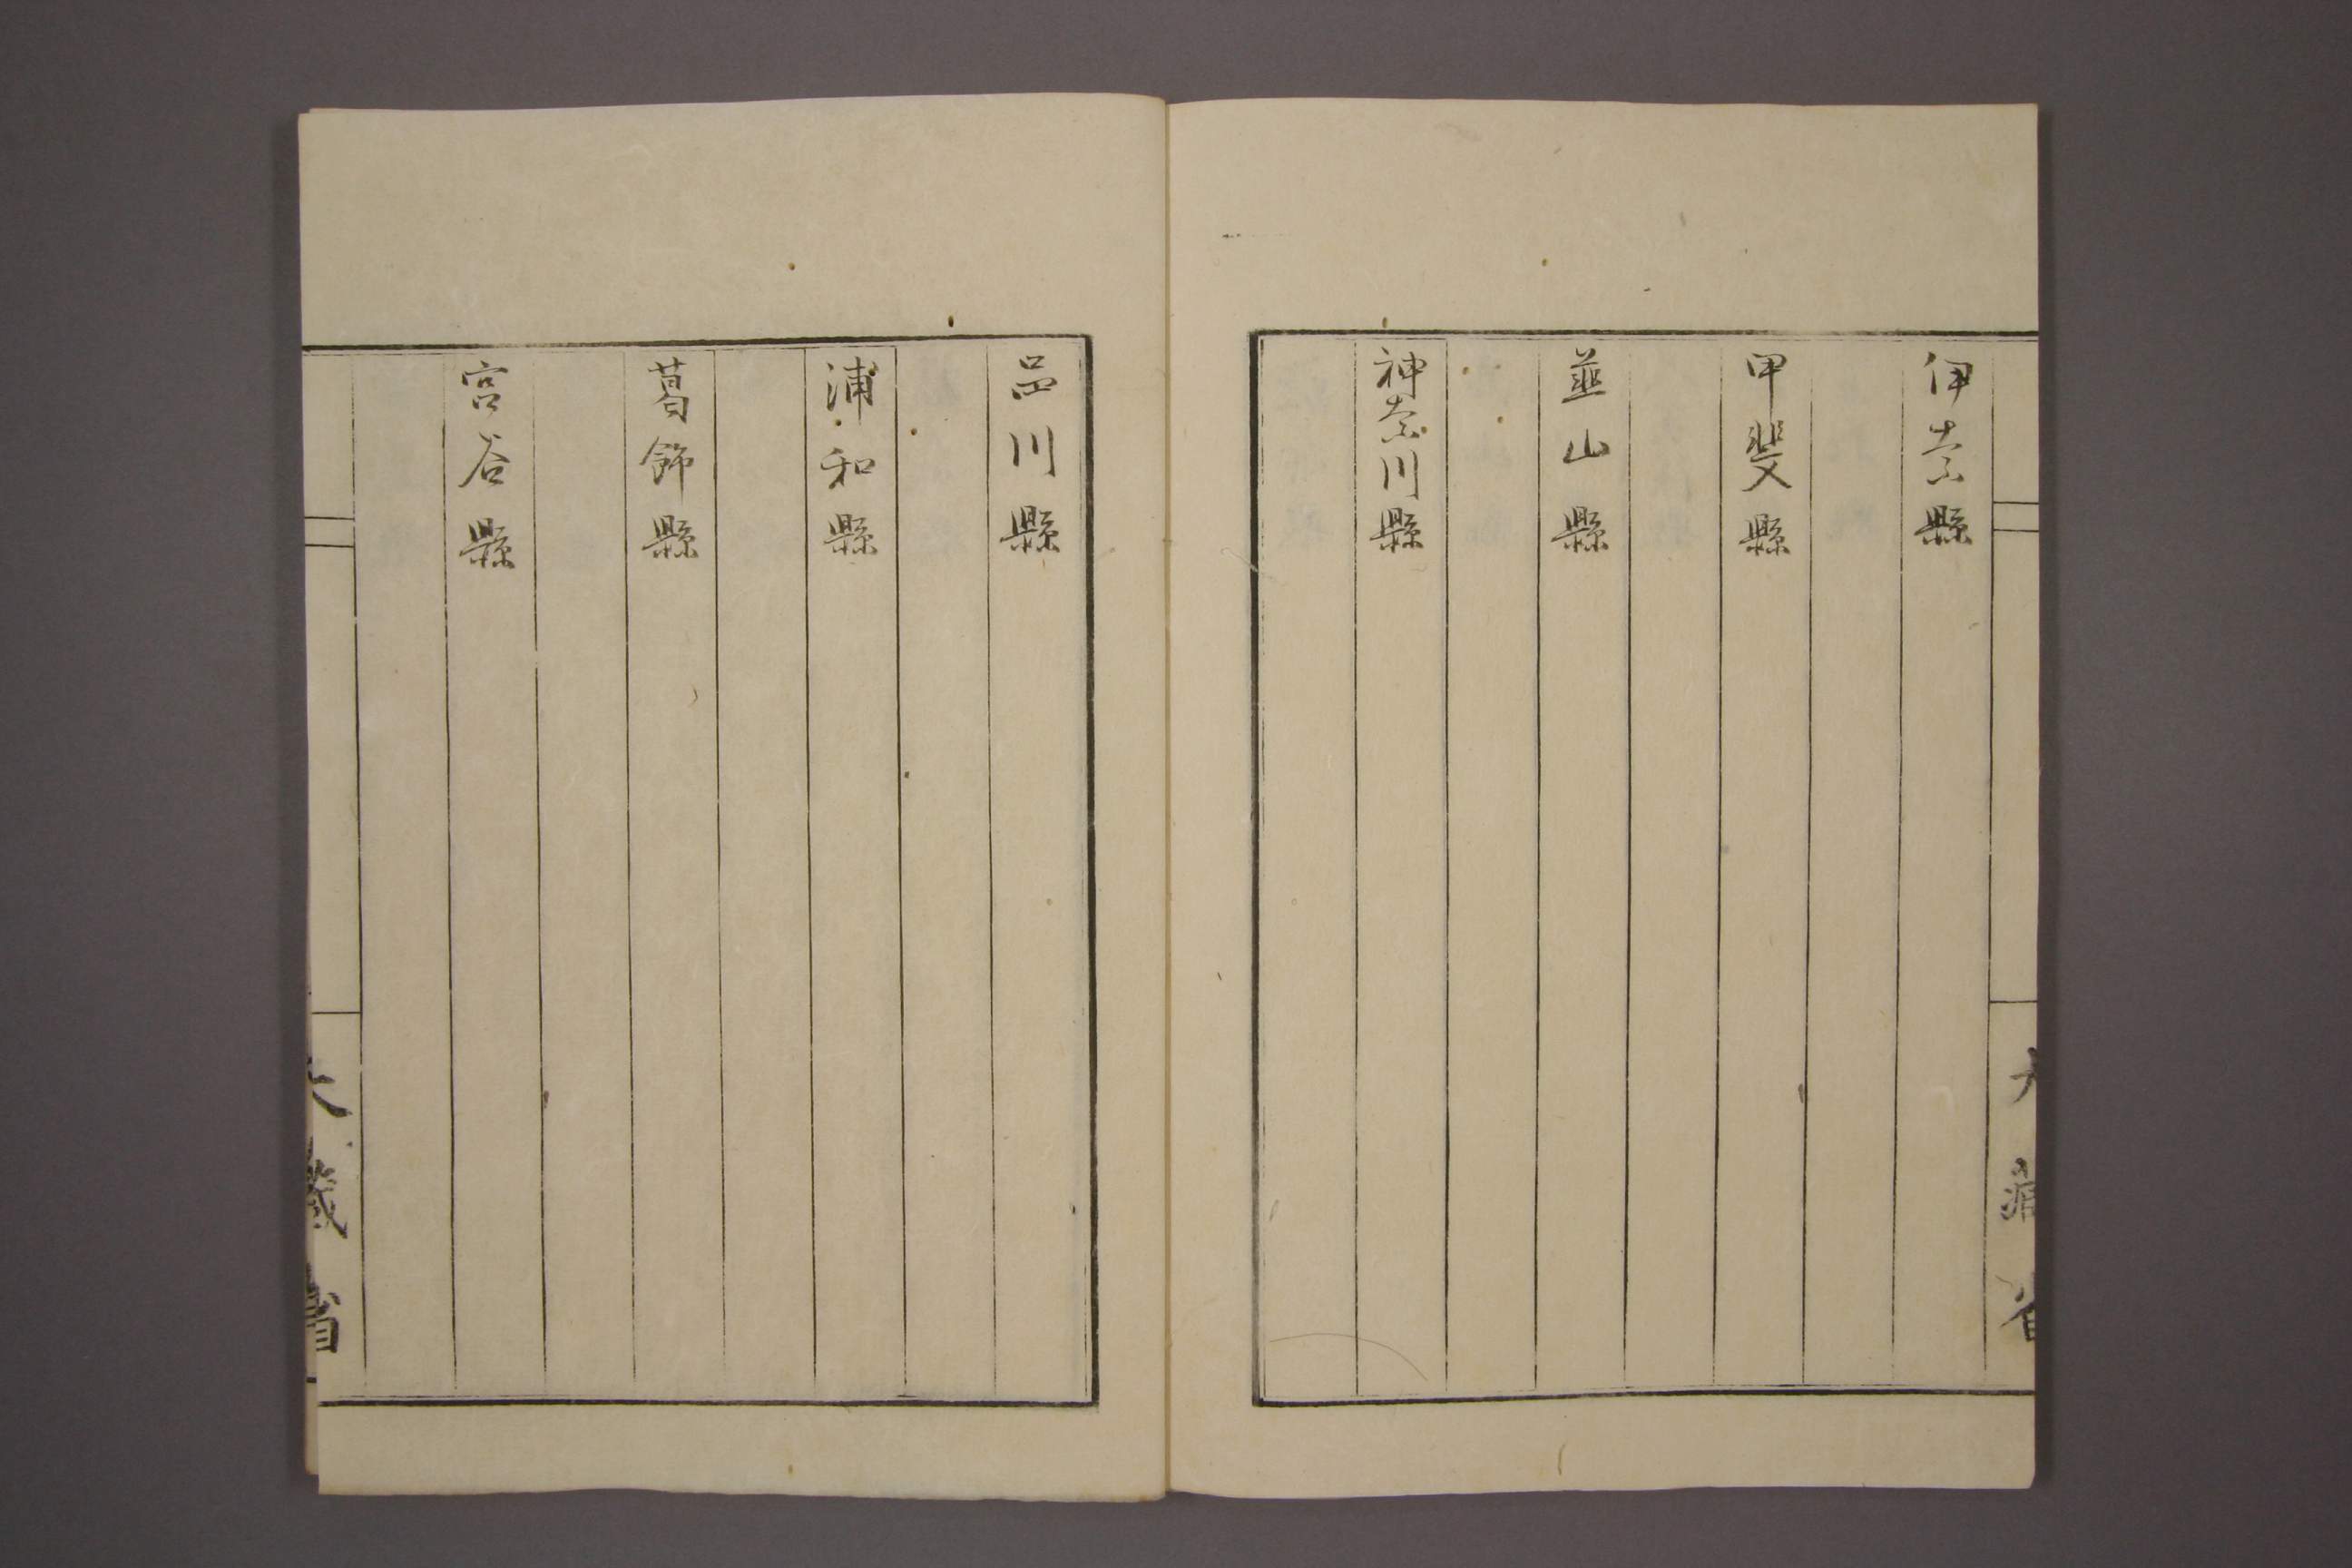 伊奈縣
甲斐縣
韮山縣
神奈川縣
大藏省
品川縣
浦和縣
葛飾縣
宮谷縣
大藏省